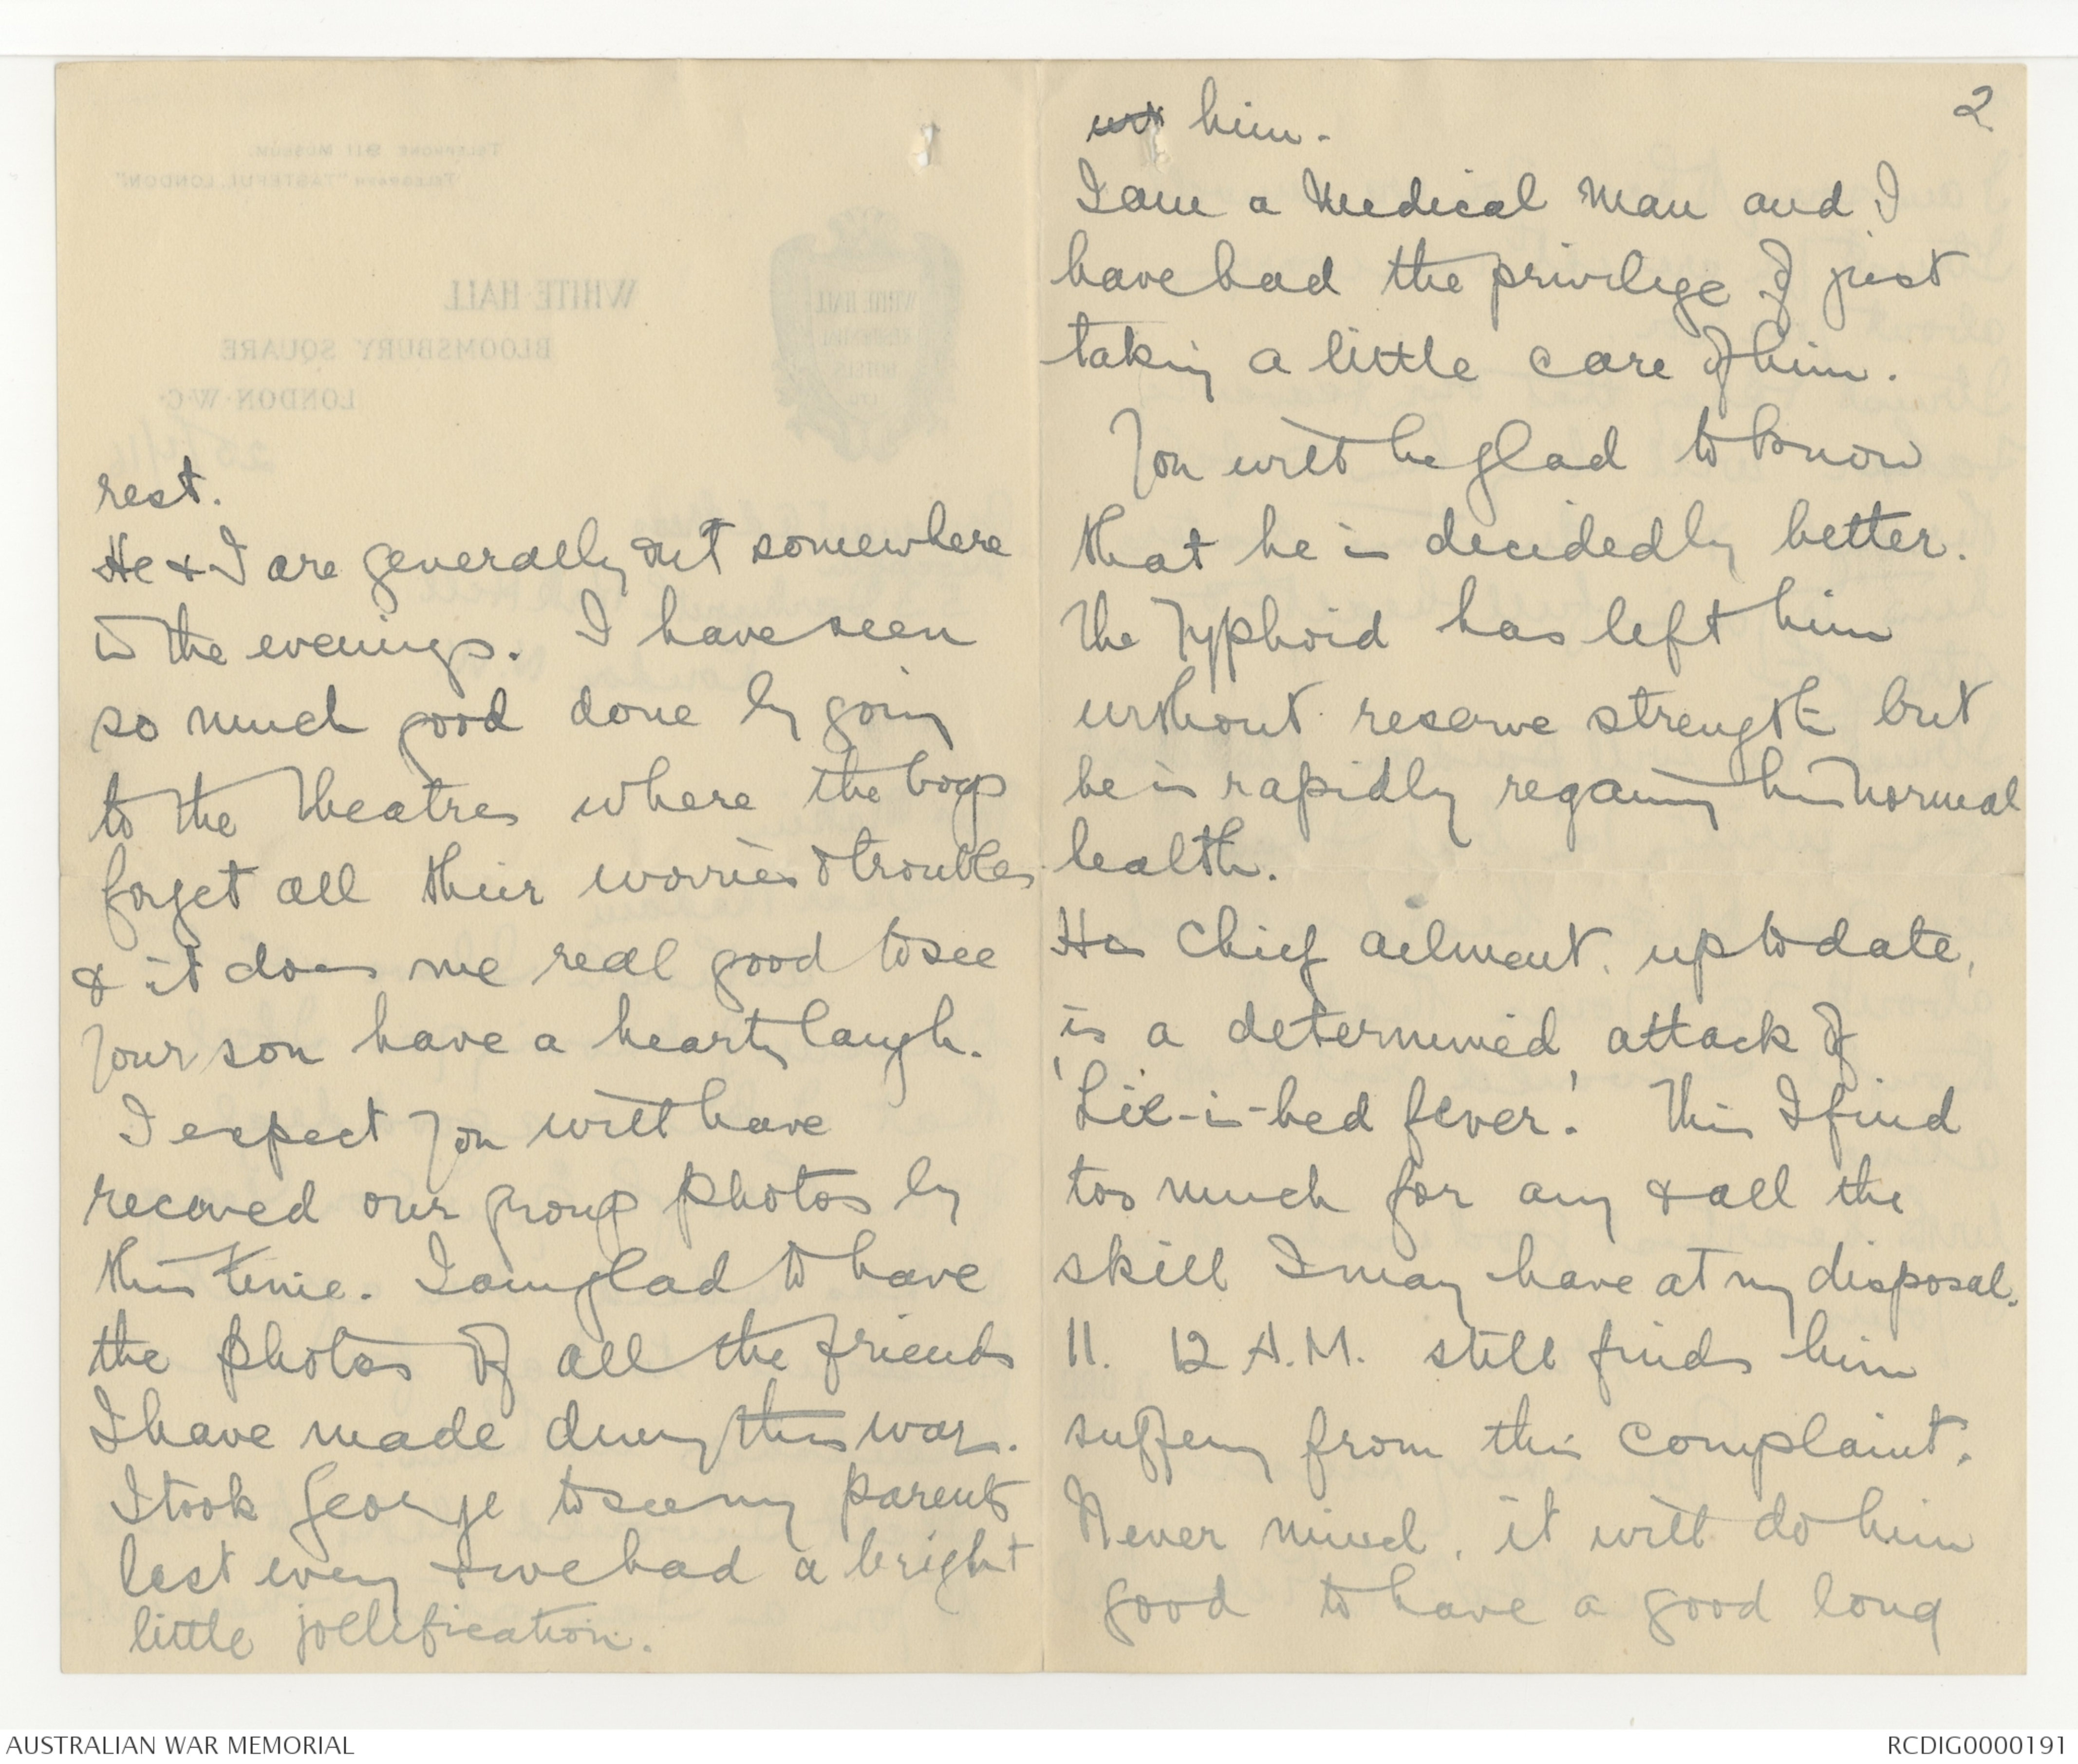 2
him.
I am a Medical Man and I
have had the privilege of just
taking a little care of him.
You will be glad to know
that he is decidedly better.
The Typhoid has left him
without reserve strength but
he is rapidly regaining his normal
health.
His chief ailment, up to date,
is a determined attack of
'Lie-in-bed fever'. This I find
too much for any & all the
skill I may have at my disposal.
11. 12 A.M. still finds him
suffering from this complaint.
Never mind, it will do him
good to have a good long
rest.
He & I are generally out somewhere
in the evenings. I have seen
so much good done by going
to the theatres where the boys
forget all their worries & troubles
& it does me real good to see
your son have a hearty laugh.
I expect you will have
received our group photos by
this time. I am glad to have
the photos of all the friends
I have made during this war.
I took George to see my parents
last eveng & we had a bright
little jollification.
AUSTRALIAN WAR MEMORIAL
RCDIG0000191